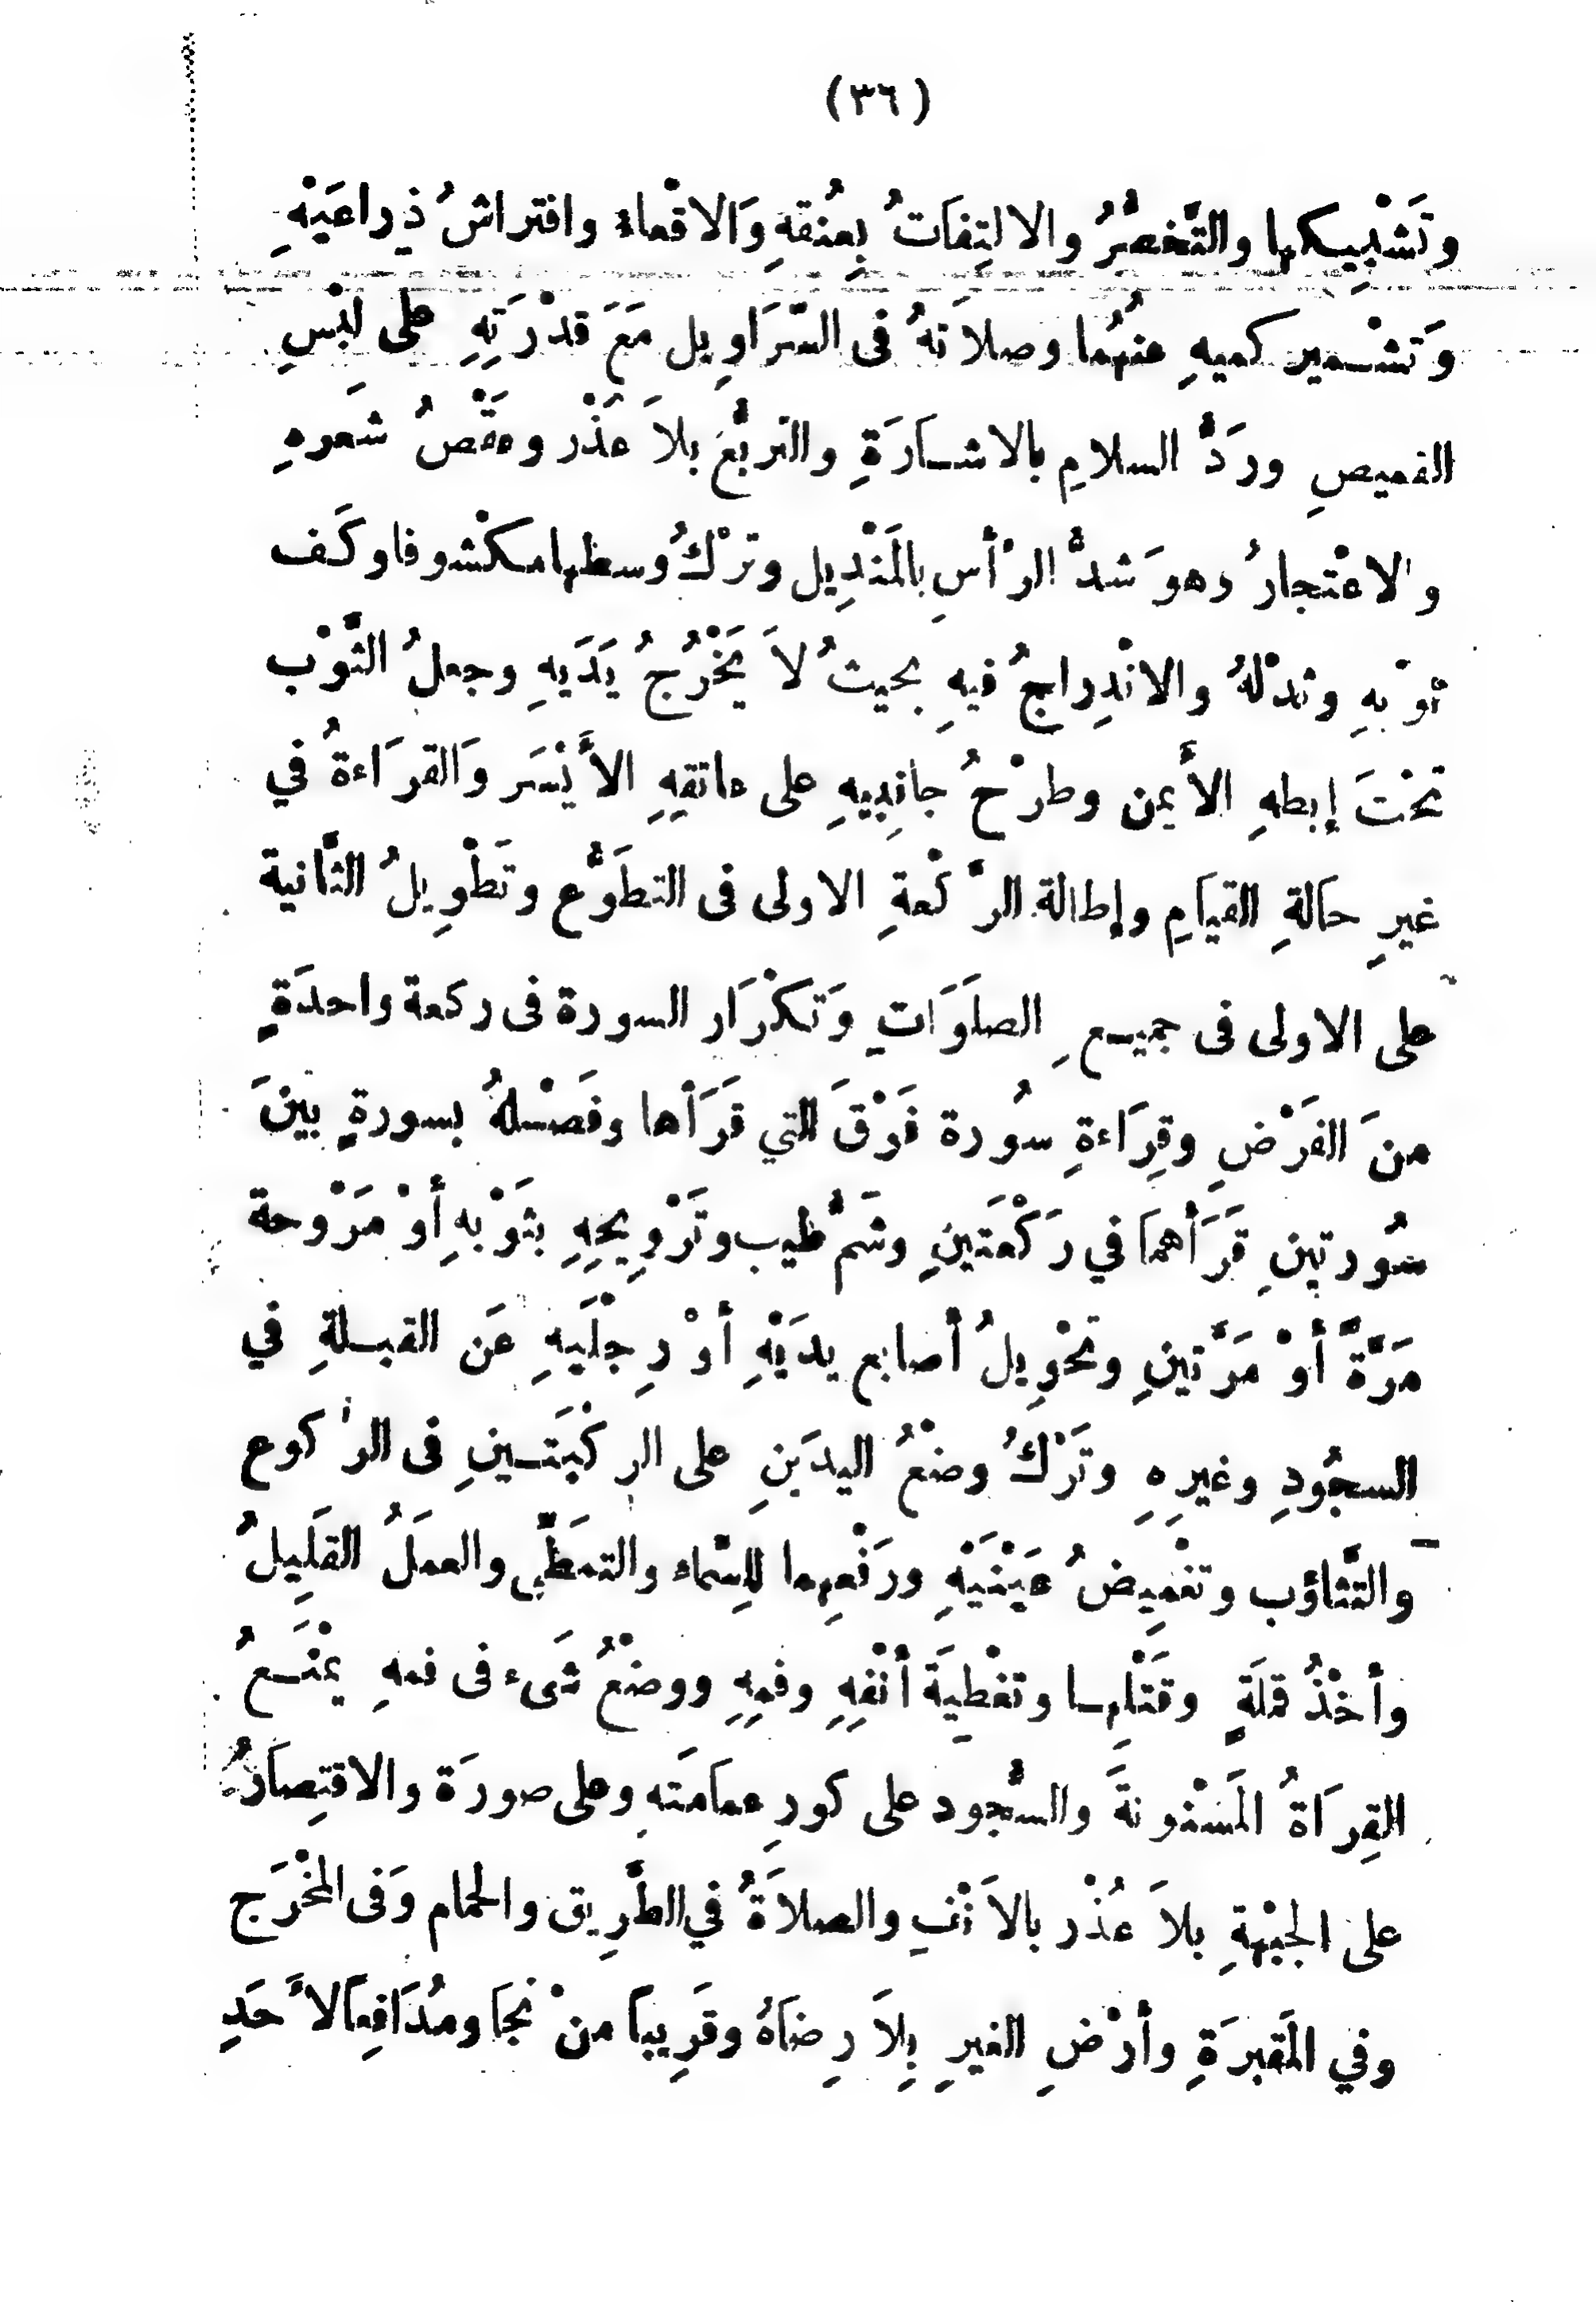 (٣٦)
وتَشْبِيكها والتَّخصُّرُ والالتِفَاتُ بِعُنقهِ وَالاقْعاء وافتراشُ ذِراعَيْهِ
وَتشْمير كميهِ عنهُما وصلاَتهُ فى السَّرَاوِيل مَعَ قدْرَتِهِ على لبْسِ
القميصِ وردَّ السلامِ بالاشارَةِ والتربُّعَ بلاَ عُذْر وعَقْصُ شَعرهِ
والاعْتجارُ وهوَ شدُّ الرْأسِ بالمَنْدِيل وترْكُ وسطها مكْشوفا وكَف
ثوْبهِ وسْدلهُ والانْدِراجُ فيهِ بحيثُ لاَ يَخْرُجُ يَدَيهِ وجعلُ الثَّوْب
تحْتَ إبطهِ الأَيمن وطرْحُ جانِبيهِ على عاتقِهِ الأَيْسَر وَالقرَاءةُ في
غيرِ حَالةِ القيَامِ وإطالة الرَّكْعةِ الاولى فى التطَوُّع وتَطْوِيلُ الثَّانية
على الاولى فى جميع الصلَوَاتِ وَتكْرَار السورة فى ركعة واحدَةٍ
منَ الفَرْضِ وقِرَاءةِ سُورة فَوْقَ التي قَرَأها وفَصْلهُ بسورةٍ بينَ
سُورتينِ قَرَأهمَا في رَكْعَتَينِ وشَمُّ طيب وتَرْوِيحِهِ بثوْبهِ أوْ مَرْوحة
مَرَّةً أوْ مَرَّتينِ وتحْوِيلُ أصابع يدَيْهِ أوْ رِجْلَيهِ عَن القبلةِ في
السجُودِ وغيرِهِ وتَرْكُ وضْعُ اليدَينِ على الركْبَتينِ فى الركوع
والتَّثاؤب وتغْمِيضُ عَيْنَيْهِ ورَفْعِهما لِلسَّماء والتمَطِّي والعمَلُ القَلِيلُ
وأخْذُ قملَةٍ وقَتْلِها وتغْطِيَةَ أنْفِهِ وفمِهِ ووضْعُ شَىء فى فمهِ يمْنَعُ
القِرَاةُ المَسْنونةَ والسُّجود على كورِ عمامَتهِ وعلى صورَة والاقتِصَارُ
على الجبْهةِ بلاَ عُذْر بالاَنْفِ والصلاَةُ في الطَّرِيق والحمام وَفى المخْرَج
وفي المَقبرَةِ وأرْضِ الغيرِ بِلاَ رِضاهُ وقَرِيباً منْ نجَا ومُدَافِعاً لأَحَدِ